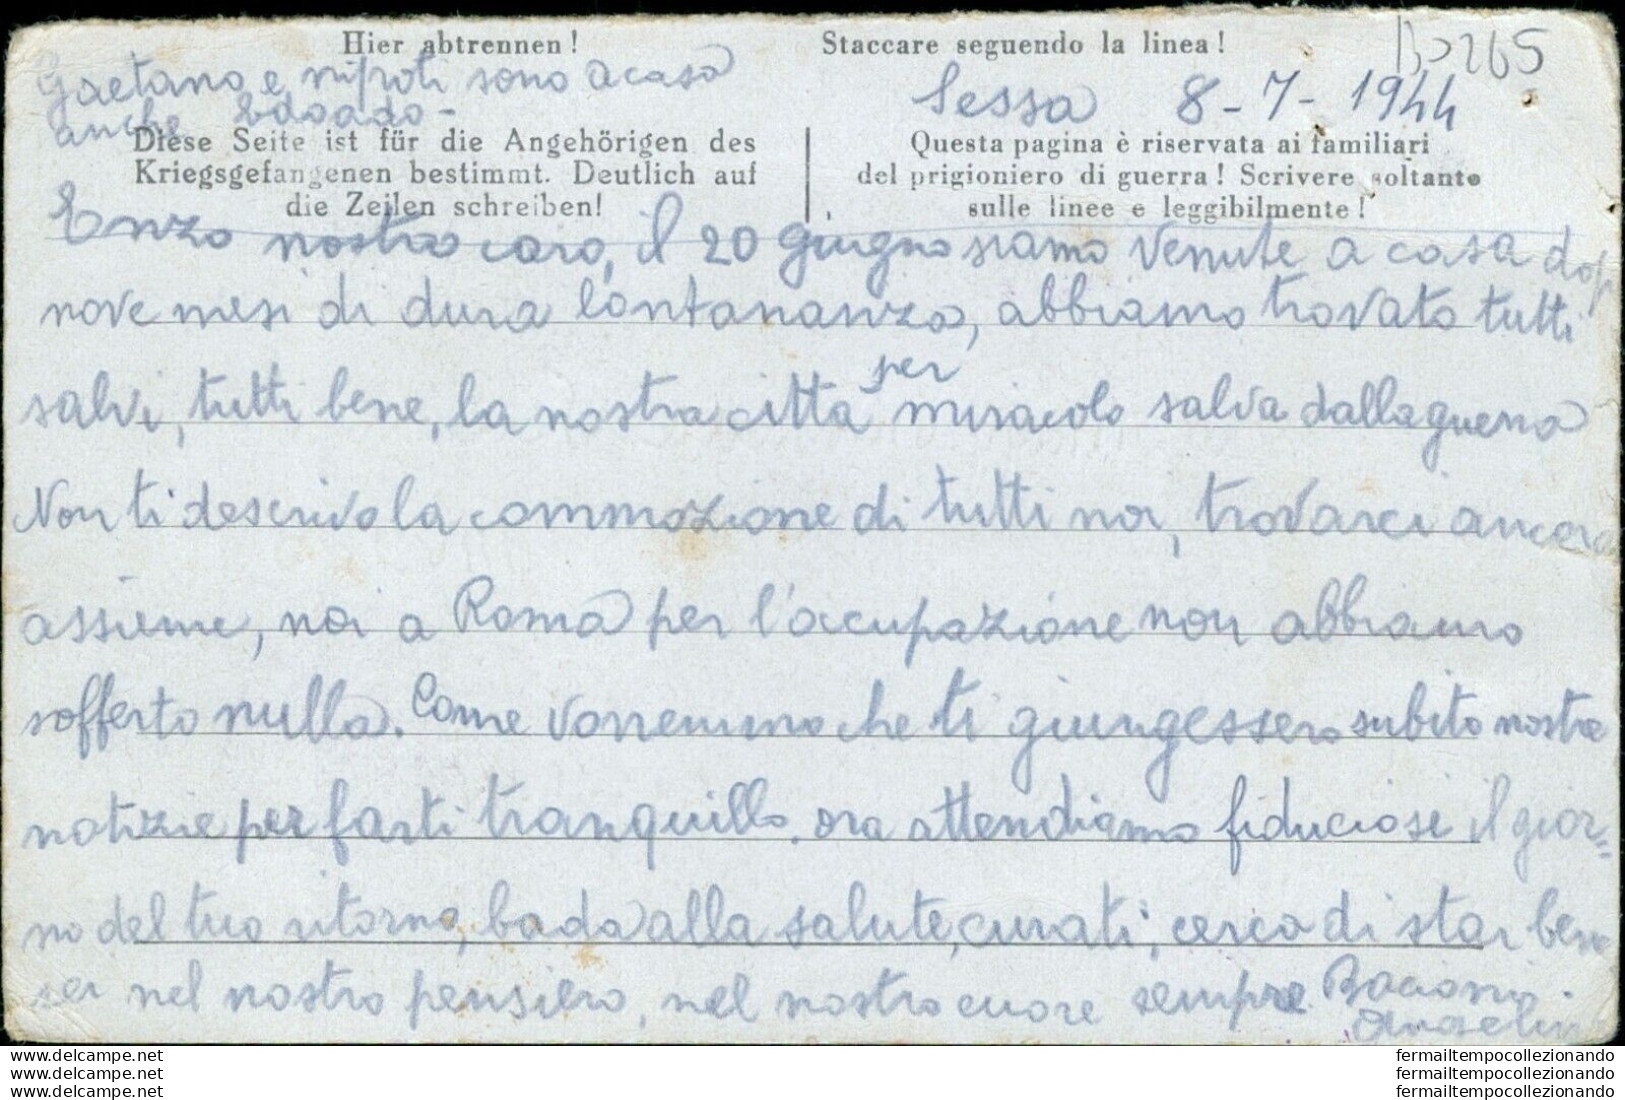 Hier abtrennen!
Staccare seguendo la linea!
B0265
Gaetano e nipoti sono a casa
anche Edoardo -
Sessa 8-7-1944
Diese Seite ist für die Angehörigen des
Kriegsgefangenen bestimmt. Deutlich auf
die Zeilen schreiben!
Questa pagina è riservata ai familiari
del prigioniero di guerra! Scrivere soltanto
sulle linee e leggibilmente!
Enzo nostro caro, il 20 giugno siamo venute a casa dopo
nove mesi di dura lontananza, abbiamo trovato tutti
salvi, tutti bene, la nostra città per miracolo salva dalla guerra
Non ti descrivo la commozione di tutti noi, trovarci ancora
assieme, noi a Roma per l'occupazione non abbiamo
sofferto nulla. Come vorremmo che ti giungessero subito nostre
notizie per farti tranquillo. ora attendiamo fiduciose il gior=
no del tuo ritorno, bada alla salute, curati, cerca di star bene
sei nel nostro pensiero, nel nostro cuore sempre Bacioni.
Angelina
www.delcampe.net
www.delcampe.net
www.delcampe.net
fermailtempocollezionando
fermailtempocollezionando
fermailtempocollezionando